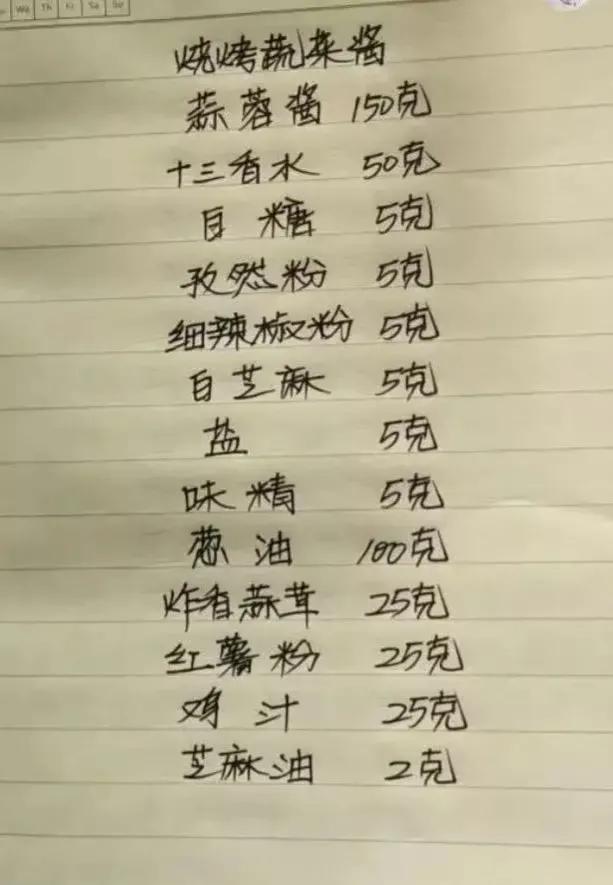 We Th Fr Sa Su
烧烤蔬菜酱
蒜蓉酱 150克
十三香水 50克
白糖 5克
孜然粉 5克
细辣椒粉 5克
白芝麻 5克
盐 5克
味精 5克
葱油 100克
炸香蒜茸 25克
红薯粉 25克
鸡汁 25克
芝麻油 2克